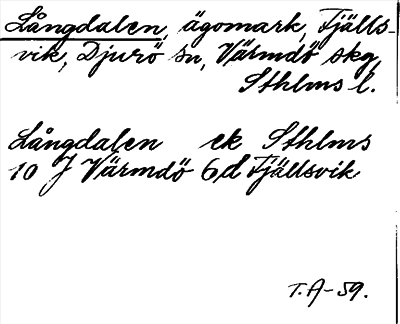 Långdalen, ägomark, Fjälls-
vik, Djurö sn, Värmdö skg,
Sthlms l.
Långdalen ek Sthlms
10 J Värmdö 6d Fjällsvik
T.A-59.